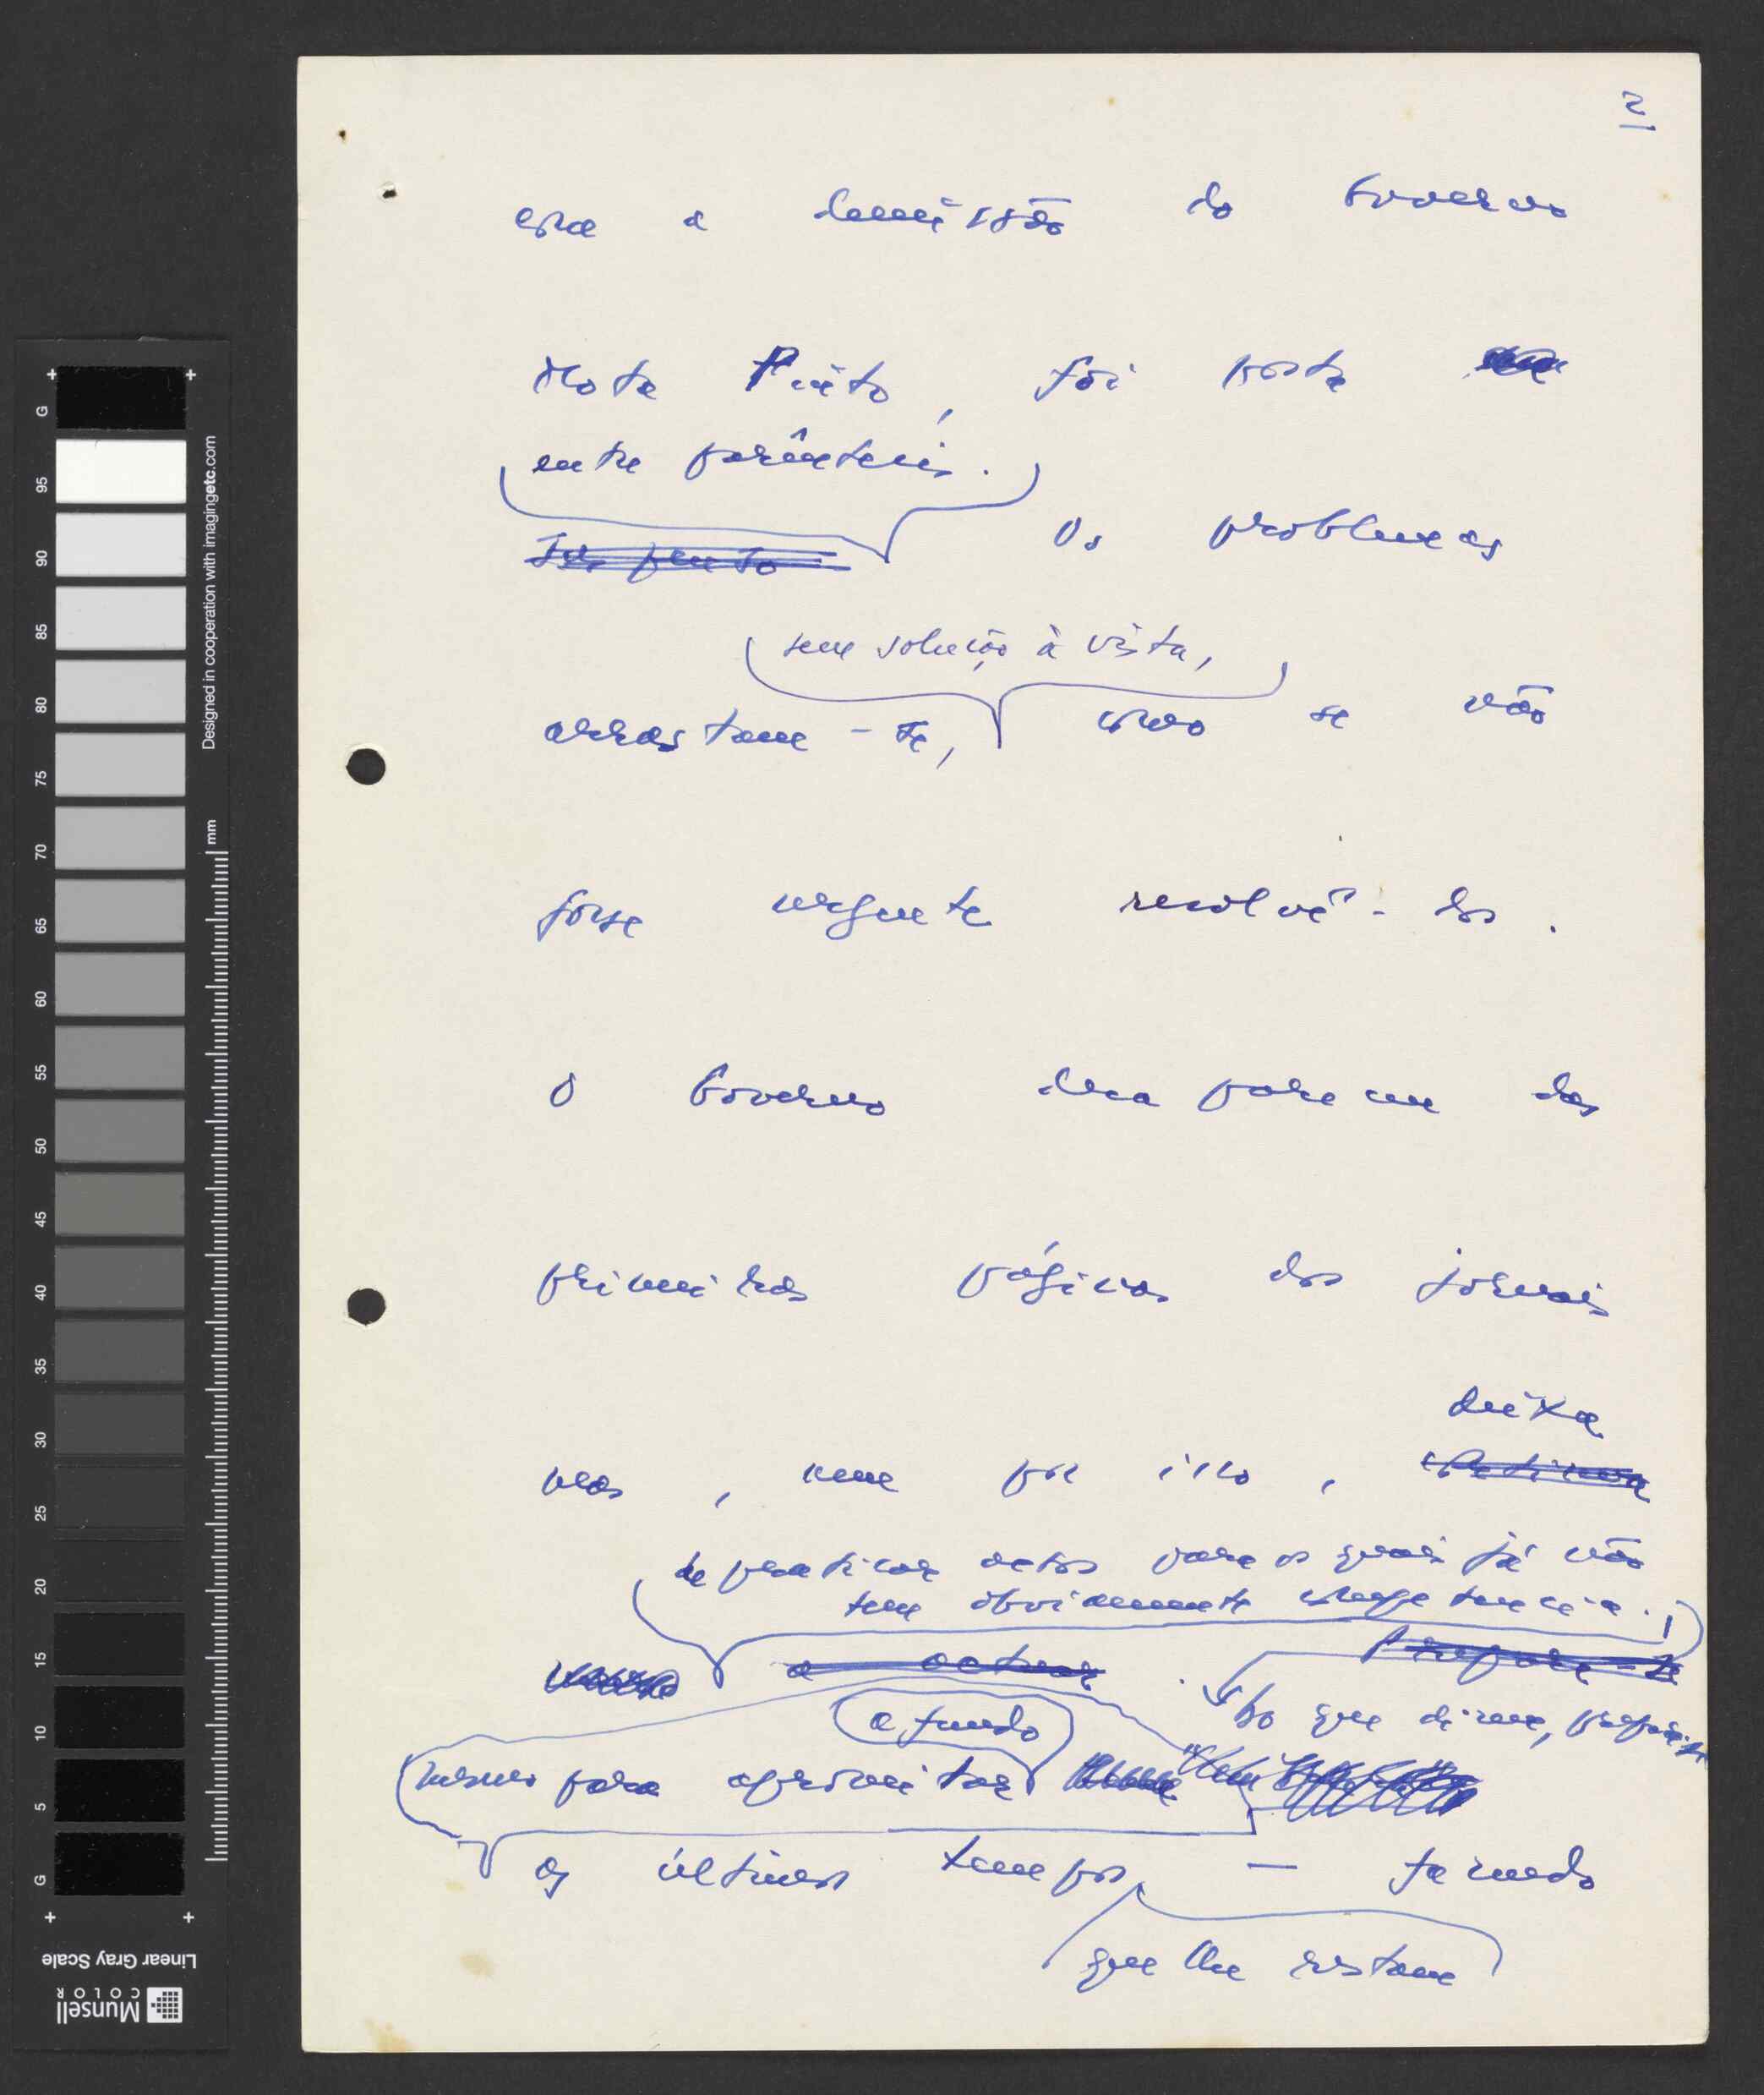 2
com a demissão do Governo
Mota Pinto, foi posta
entre parêntesis.
Os problemas
sem solução à vista,
arrastam-se, como se não
fosse urgente resolvê-los.
O Governo desaparece das
primeiras páginas dos jornais
deixa
mas, nem por isso, continua
de praticar actos para os quais já não
tem obviamente competência.
a actuar. Prepara-se
Ao que dizem, prepara-se
a fundo
mesmo para aproveitar
os últimos tempos — tomando
que lhe restam
G
95
90
85
80
75
70
65
60
55
50
45
40
35
30
25
20
15
10
5
G
Designed in cooperation with imagingetc.com
mm
Linear Gray Scale
Munsell
COLOR